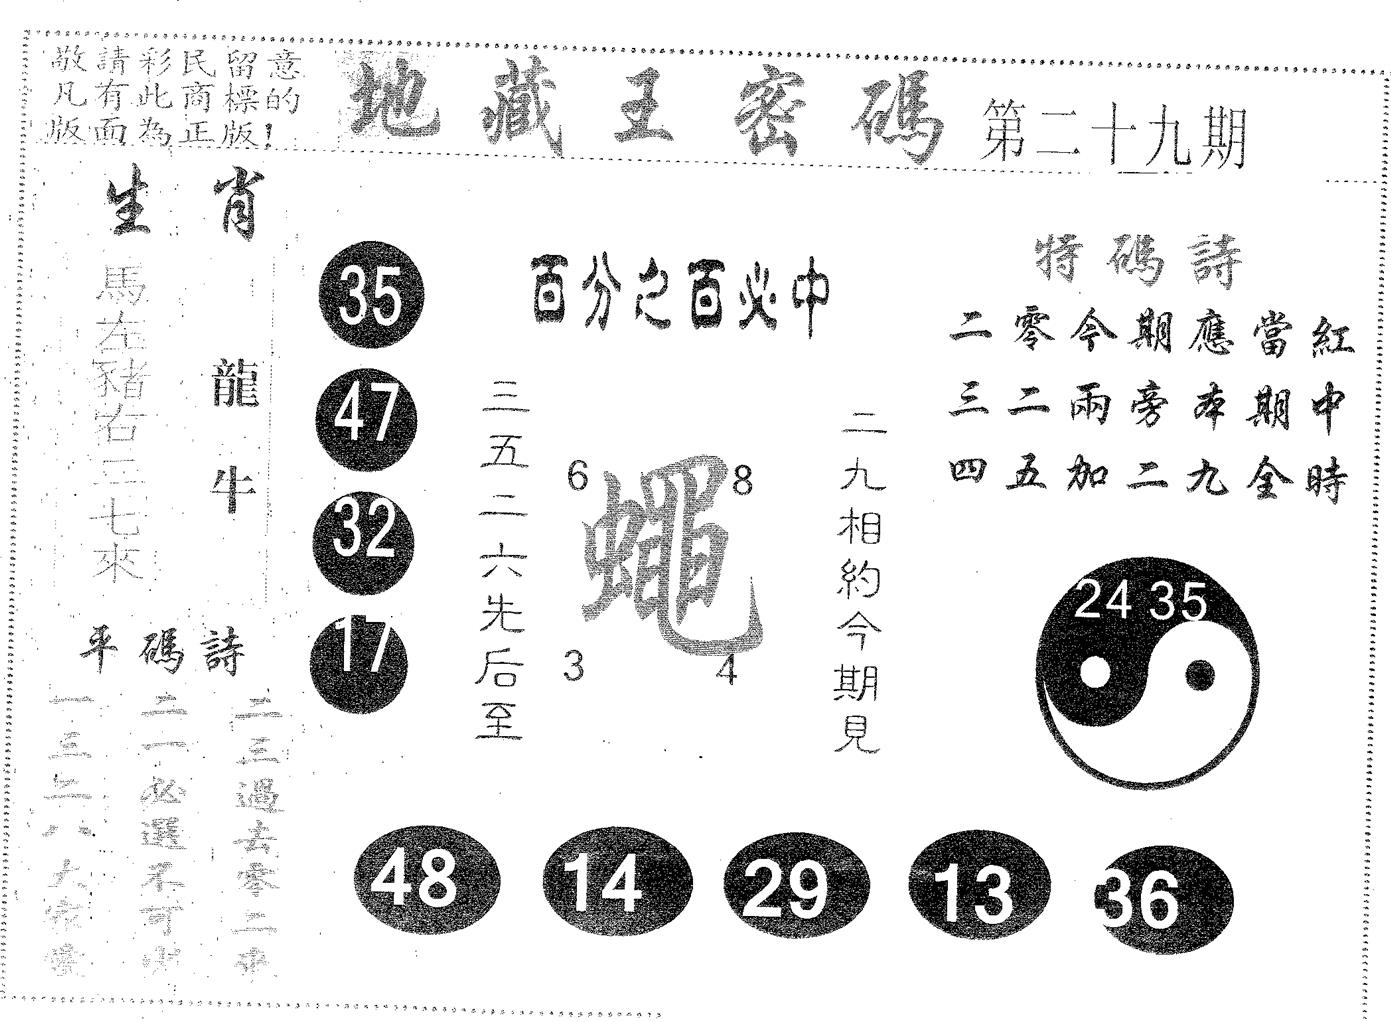 敬請彩民留意
凡有此商標的
版面為正版!
地藏王密碼
第二十九期
生肖
馬左豬右三七來
龍牛
35
47
32
17
百分之百必中
三五二六先后至
6
8
蠅
3
4
二九相約今期見
特碼詩
二零今期應當紅
三二兩旁本期中
四五加二九全時
24 35
平碼詩
二三過去零二來
二一必選不可少
一三二八大家
48
14
29
13
36